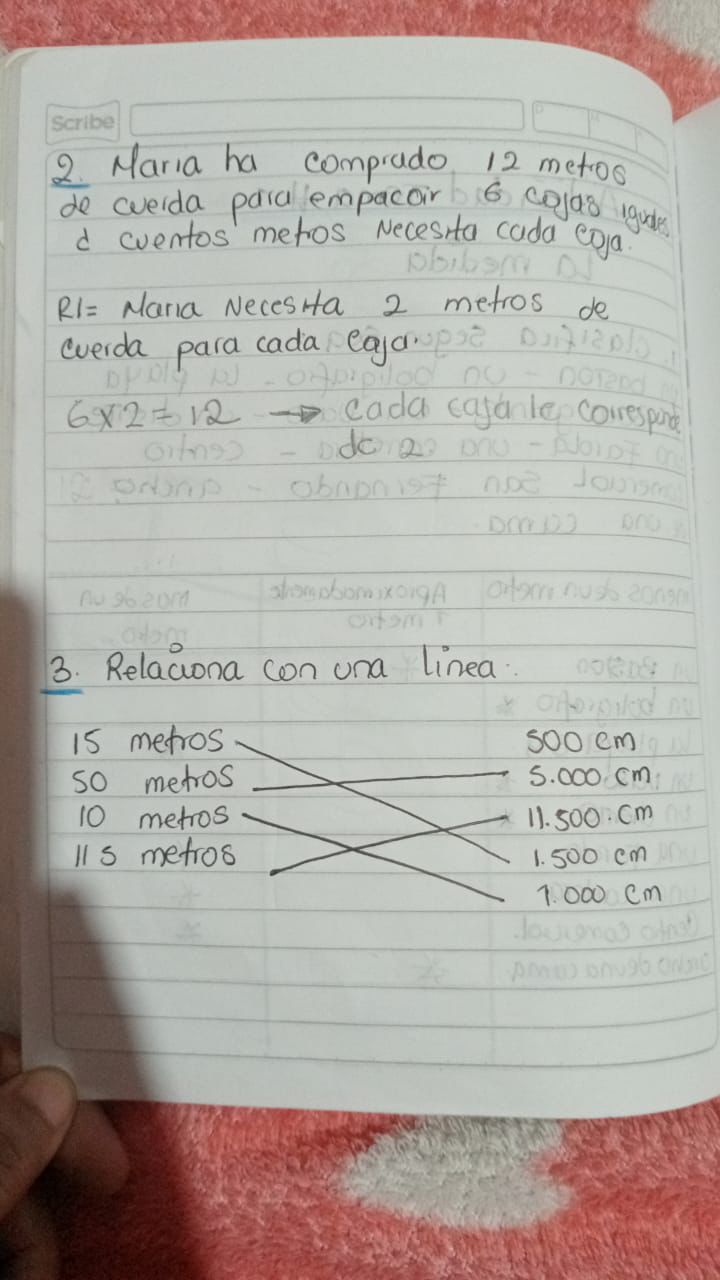 Scribe
2. Maria ha comprado 12 metros
de cuerda para empacar 6 cajas iguales
d cuentos metros Necesita cada caja.
R/= Maria Necesita 2 metros de
cuerda para cada caja.
6x2=12 → cada caja le corresponde
de 2
3. Relaciona con una linea.
15 metros 500 cm
50 metros 5.000 cm
10 metros 11.500 cm
115 metros 1.500 cm
1.000 cm